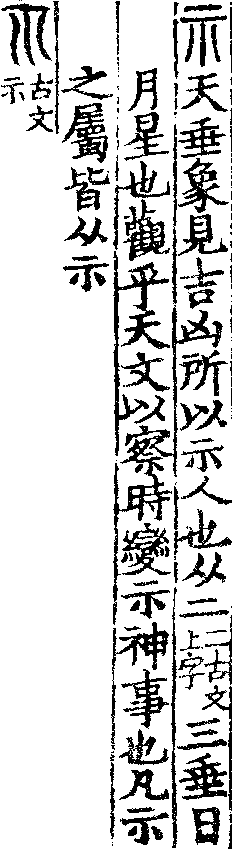 示天垂象見吉凶所以示人也从二二古文上字三垂日
月星也觀乎天文以察時變示神事也凡示
之屬皆从示
示古文示